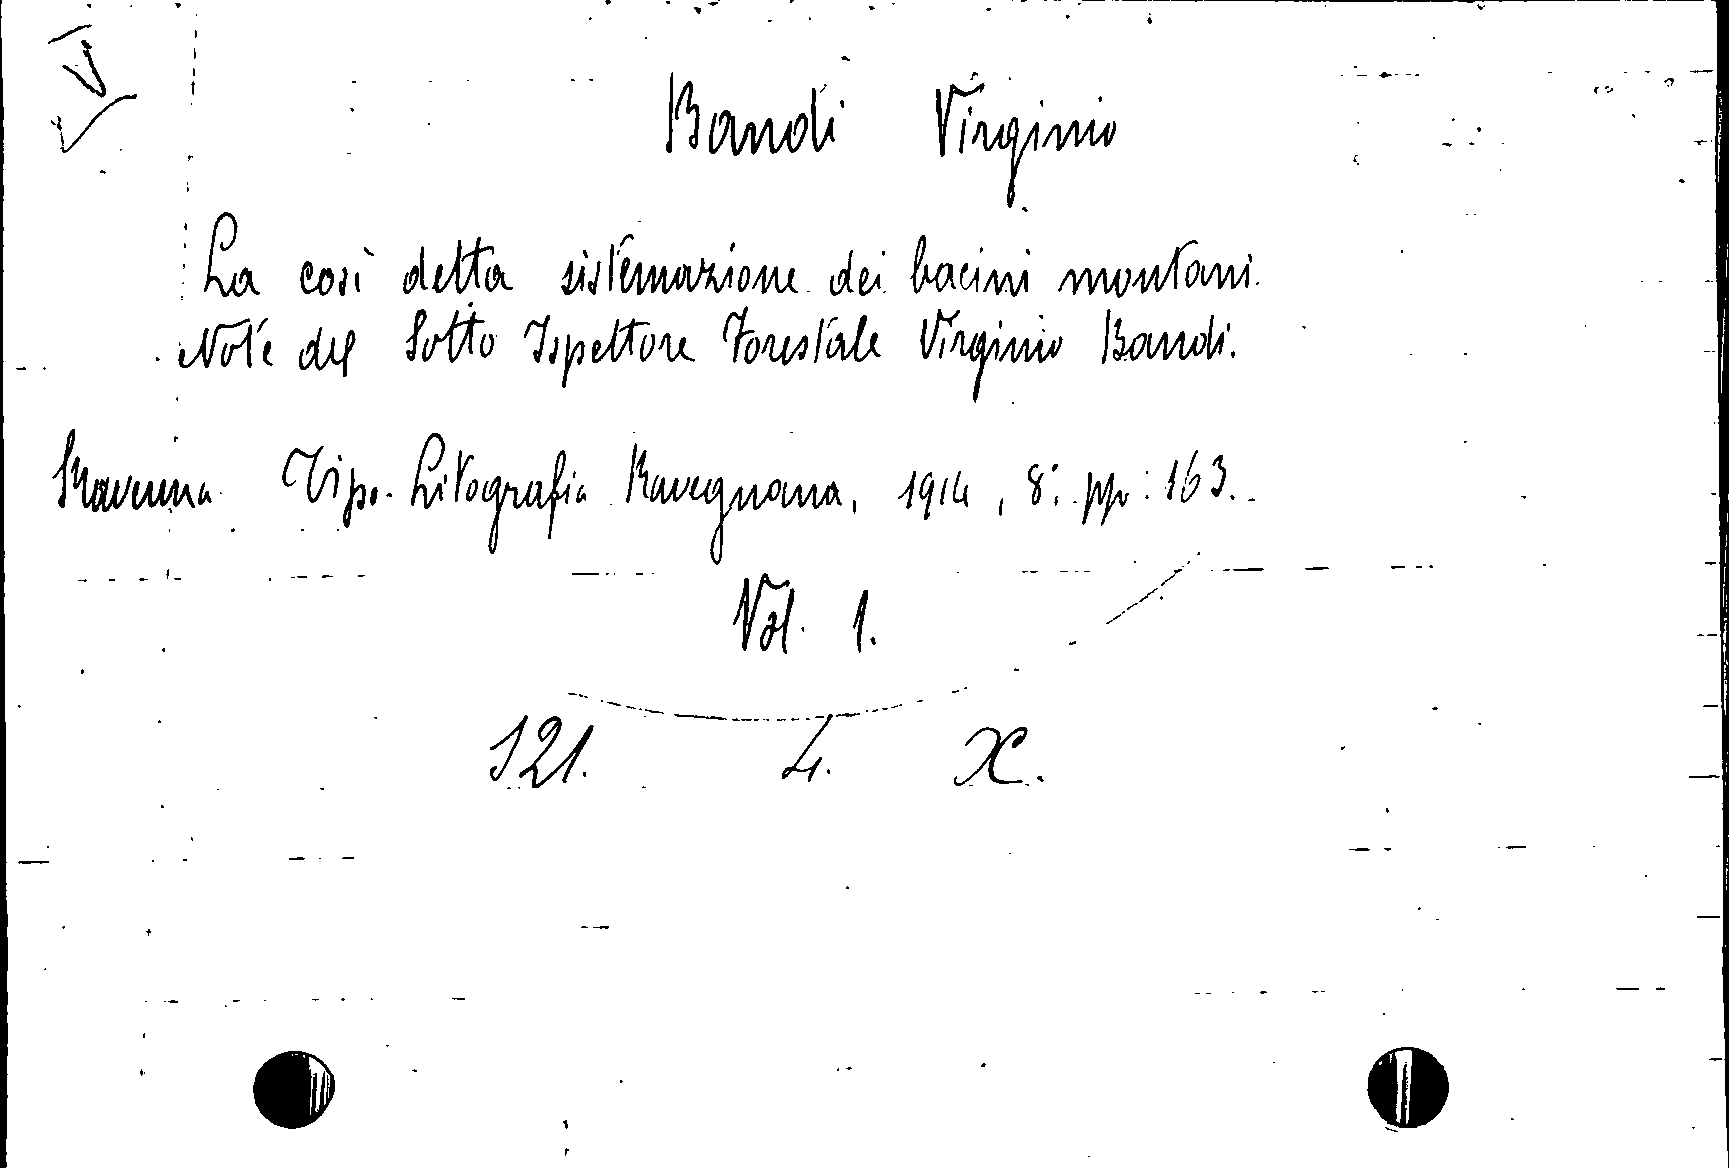 V
Bandi Virginio
La così detta sistemazione dei bacini montani.
Note del Sotto Ispettore Forestale Virginio Bandi.
Ravenna Tipo-Litografia Ravegnana, 1914, 8° pp: 163.
Vol. 1.
121. 4. X.